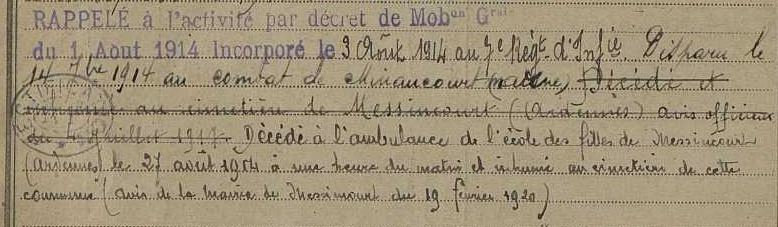 RAPPELÉ à l'activité par décret de Mobon Gale
du 1 Aout 1914 Incorporé le 3 Août 1914 au 7e Régt d'Infie. Disparu le
14 7bre 1914 au combat de Minaucourt (Marne) Décédé et
inhumé au cimetière de Messincourt (Ardennes) avis officiel
du Juillet 1917. Décédé à l'ambulance de l'école des filles de Messincourt
(Ardennes) le 27 août 1914 à une heure du matin et inhumé au cimetière de cette
commune (avis de la Mairie de Messincourt du 19 février 1920)